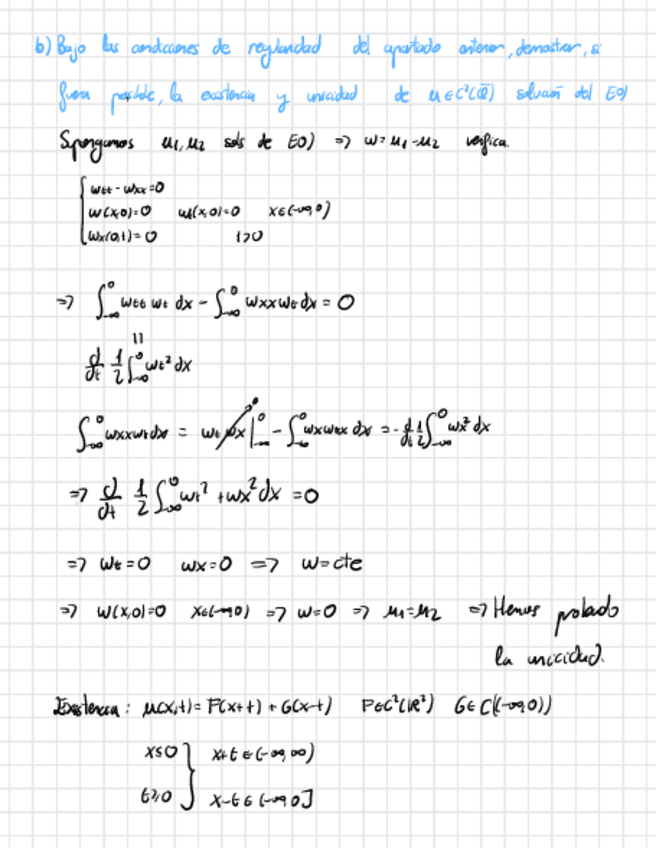 b) Bajo las condiciones de regularidad del apartado anterior, demostrar, si
fuera posible, la existencia y unicidad de u∈C²(Q̄) solución del EDP
Supongamos u₁,u₂ sols de EDP ⇒ w=u₁-u₂ verifica.
wtt - wxx=0
w(x,0)=0 wt(x,0)=0 x∈(-∞,0)
wx(0,t)=0 t>0
⇒ ∫_{-∞}^0 wtt wt dx - ∫_{-∞}^0 wxx wt dx = 0
॥
d/dt 1/2 ∫_{-∞}^0 wt² dx
∫_{-∞}^0 wxxwtdx = wt wx|_{-∞}^0 - ∫_{-∞}^0 wxwtx dx = -d/dt 1/2 ∫_{-∞}^0 wx² dx
⇒ d/dt 1/2 ∫_{-∞}^0 wt² + wx² dx = 0
⇒ wt=0 wx=0 ⇒ w=cte
⇒ w(x,0)=0 x∈(-∞,0) ⇒ w=0 ⇒ u₁=u₂ ⇒ Hemos probado
la unicidad.
Existencia: u(x,t)= F(x+t) + G(x-t) F∈C²(ℝ²) G∈C((-∞,0))
x≤0 } x+t∈(-∞,∞)
t≥0 } x-t∈(-∞,0]